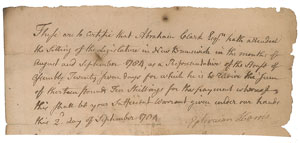 These are to certify that Abraham Clark Esqr. hath attended
the Sitting of the Legislature in New Brunswick in the month of
August and September 1784 as a Representative of the House of
Assembly Twenty four days for which he is to receive the Sum
of thirteen pounds Ten Shillings for the payment whereof
this shall be your Sufficient Warrant given under our hands
this 2d. day of September 1784